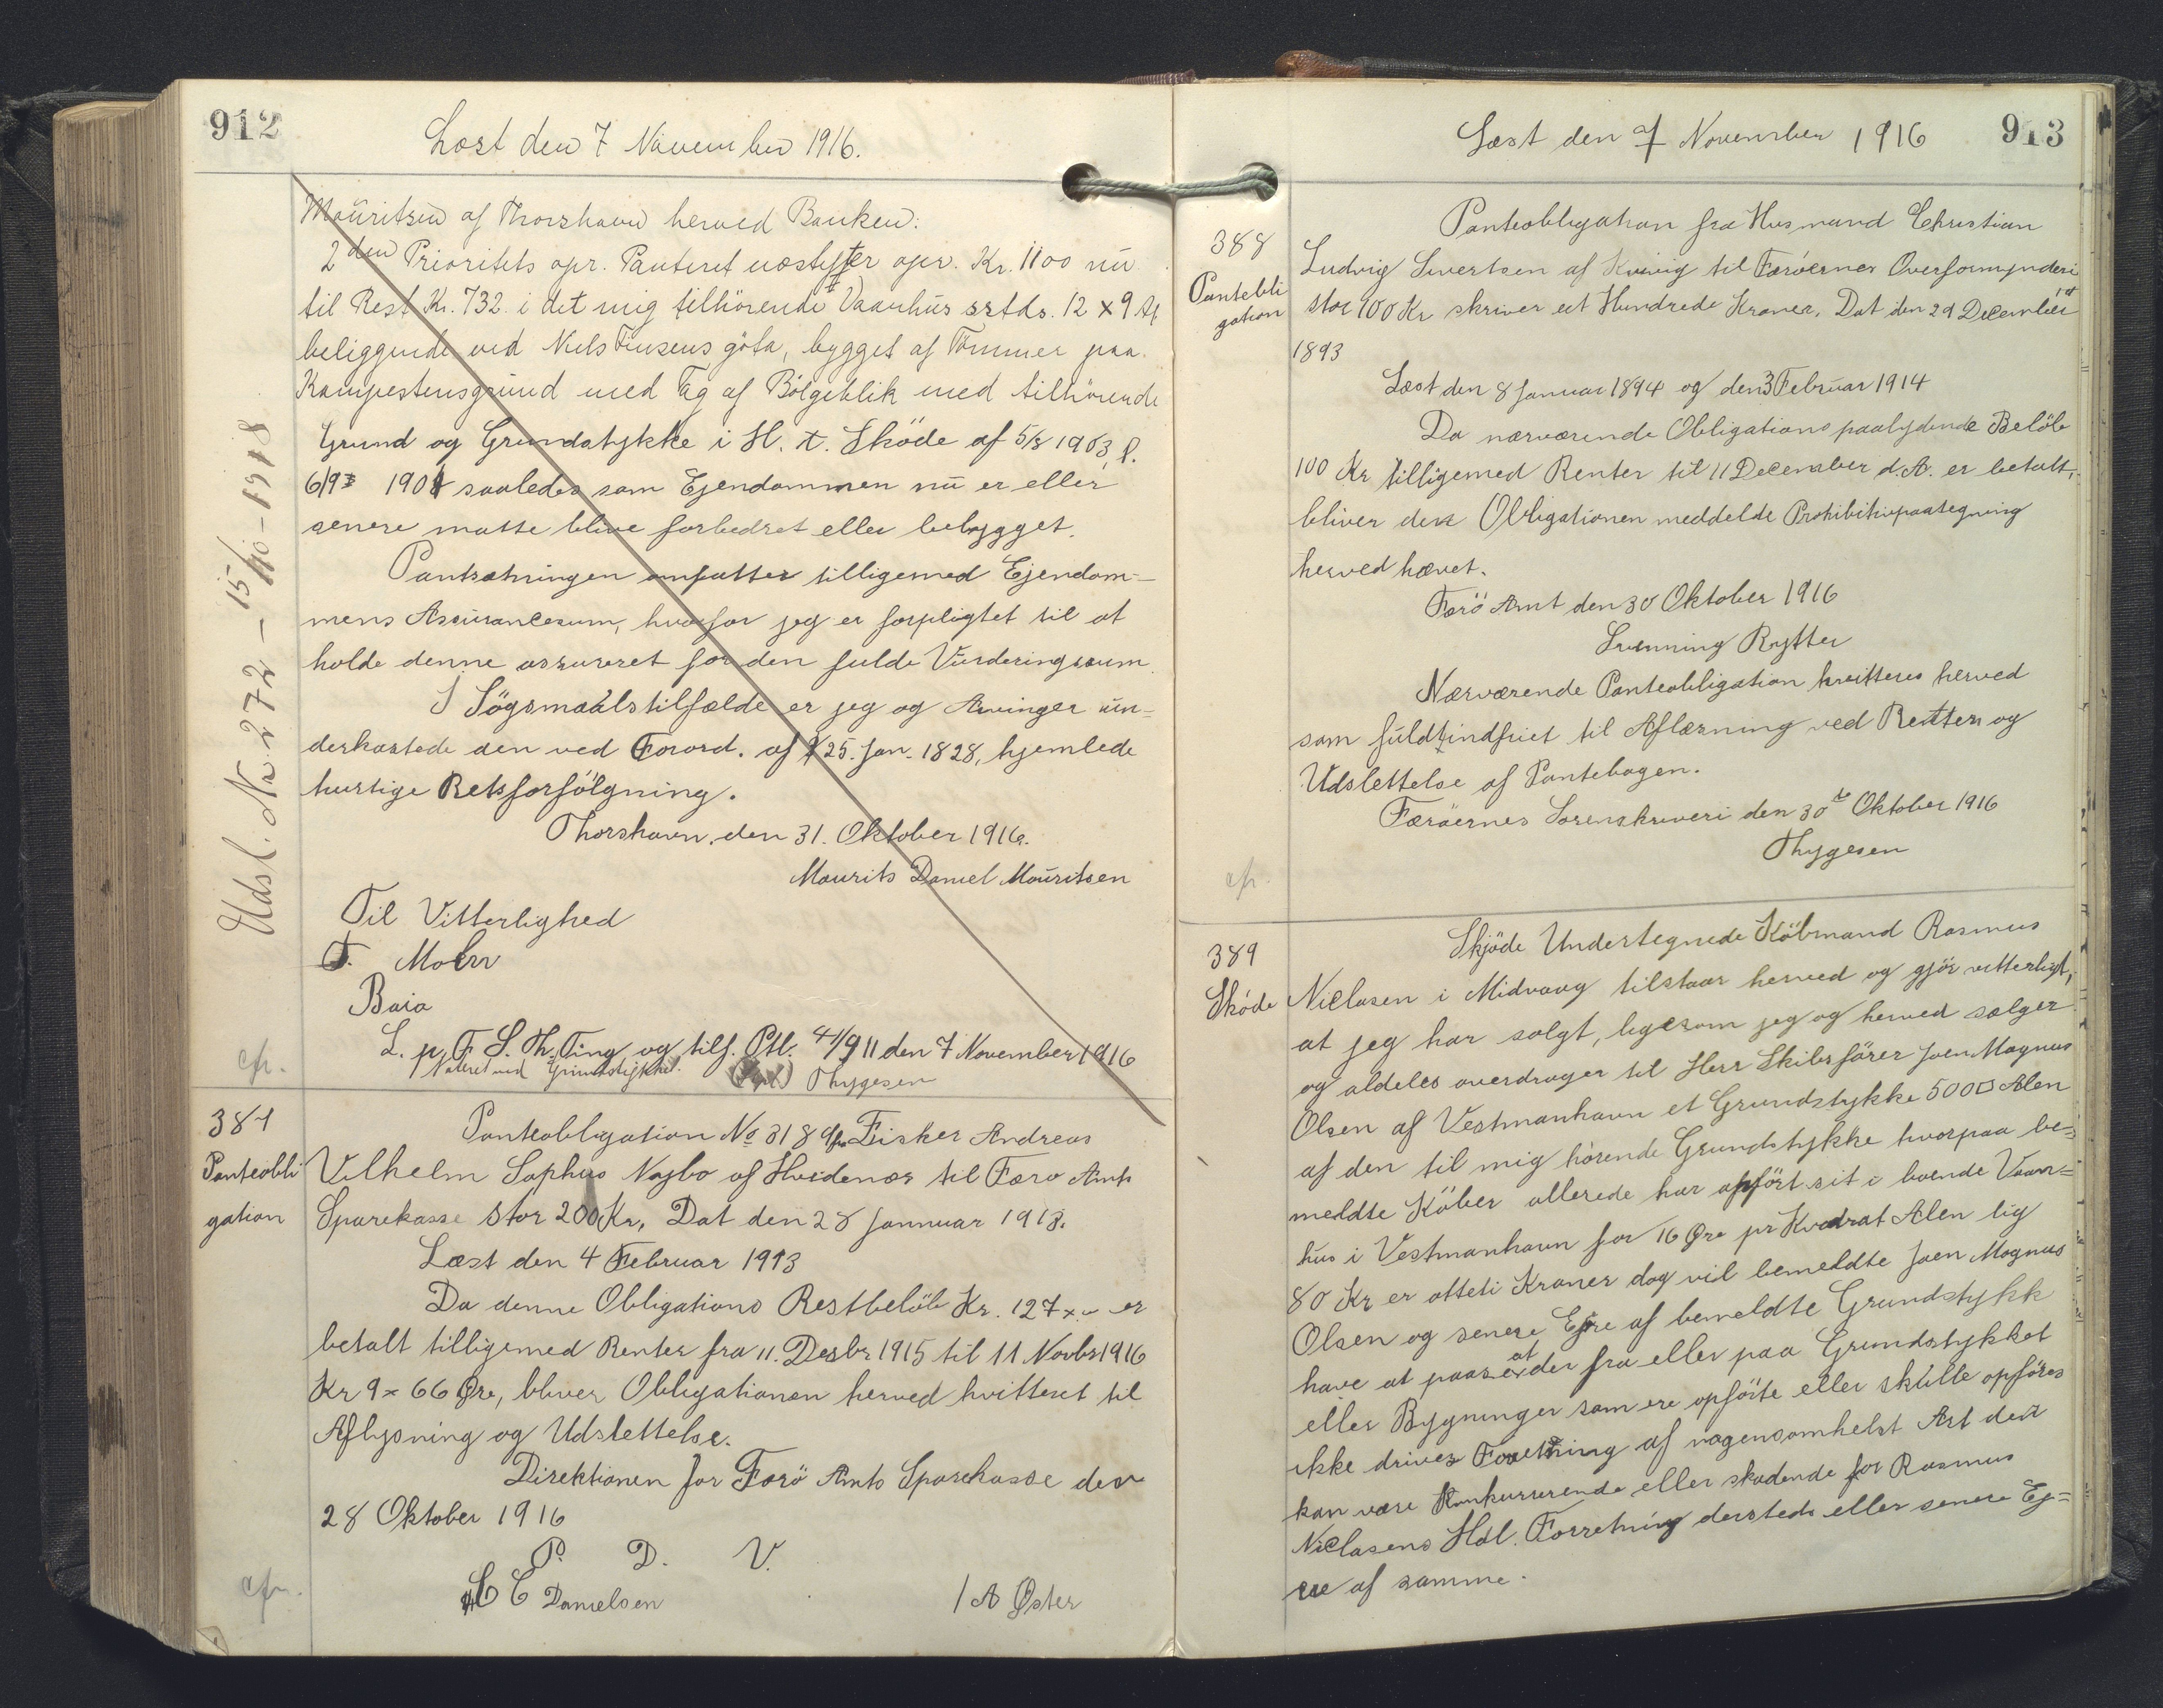 912
Læst den 7 November 1916.
Mauritsen af Thorshavn herved Banken:
2den Prioritets opr. Panteret næstefter opr. Kr. 1100 nu
til Rest Kr. 732 i det mig tilhörende Vaanhus srtds. 12 x 9 Al
beliggende ved Niels Finsens göta, bygget af Tömmer paa
Kampestensgrund med Tag af Bölgeblik med tilhörende
Grund og Grundstykke i H. t. Sköde af 5/8 1903, l.
6/9 1904 saaledes som Ejendommen nu er eller
senere maatte blive forbedret eller bebygget.
Pantsætningen omfatter tilligemed Ejendom-
mens Assurancesum, hvorfor jeg er forpligtet til at
holde denne assureret for den fulde Vurderingssum
I Sögsmaalstilfælde er jeg og Arvinger un-
derkastede den ved Forord. af 25. Jan. 1828, hjemlede
hurtige Retsforfölgning.
Thorshavn, den 31. Oktober 1916.
Maurits Daniel Mauritsen
Til Vitterlighed
F. Mohr
Baia
L. p. F. S. Th. Ting og tilf. Ptl. 41/911 den 7 November 1916
Noteret ved Grundstykke. Thygesen
cfr.
Udsl. No 272 - 15/10-1918
387
Panteobli
gation
Panteobligation No 3189 fra Fisker Andreas
Vilhelm Sophus Najbo af Hvidenæs til Færo Amts
Sparekasse stor 200 Kr, Dat den 28 Jannuar 1913.
Læst den 4 Februar 1913
Da denne Obligations Restbelöb Kr. 127 x " er
betalt tilligemed Renter fra 11. Desbr 1915 til 11 Novbr 1916
Kr 9 = 66 Øre, bliver Obligationen herved kvitteret til
Aflysning og Udslettelse.
Direktionen for Færö Amts Sparekasse den
28 Oktober 1916
P. D. V.
C C Danielsen
I A Øster
cfr.
913
Læst den 7 November 1916
388
Pantebli
gation
Panteobligation fra Husmand Christian
Ludvig Sivertsen af Kvivig til Færöernes Overformynderi
stor 100 Kr skriver eet Hundrede Kroner, Dat den 29 December
1893
Læst den 8 Januar 1894 og den 3 Februar 1914
Da nærværende Obligations paalydende Belöb
100 Kr tilligemed Renter til 11 December d. A. er betalt,
bliver den Obligationen meddelde Prohibitivpaategning
herved hævet.
Færö Amt den 30 Oktober 1916
Svenning Rytter
Nærværende Panteobligation kvitteres herved
som fuldtindfriet til Aflæsning ved Retten og
Udslettelse af Pantebogen.
Færöernes Sorenskriveri den 30te Oktober 1916
Thygesen
cfr.
389
Sköde
Skjöde Undertegnede Köbmand Rasmus
Niclasen i Midvaag tilstaar herved og gjör vitterligt,
at jeg har solgt, ligesom jeg og herved sælger
og aldeles overdrager til Herr Skibsförer Joen Magnus
Olsen af Vestmanhavn et Grundstykke 500□ Alen
af den til mig hörende Grundstykke hvorpaa be-
meldte Köber allerede har opfört sit i boende Vaan=
hus i Vestmanhavn for 16 Øre pr Kvadrat Alen lig
80 Kr er otteti Kroner dog vil bemeldte Joen Magnus
Olsen og senere Ejere af bemeldte Grundstykk
have at paase at der fra eller paa Grundstykket
eller Bygninger som ere opförte eller skulle opföres
ikke drives Forretning af nogensomhelst Art den
kan være Konkurrerende eller skadende for Rasmus
Niclasens Hdl. Forretning dersteds eller senere Ej=
ere af samme.